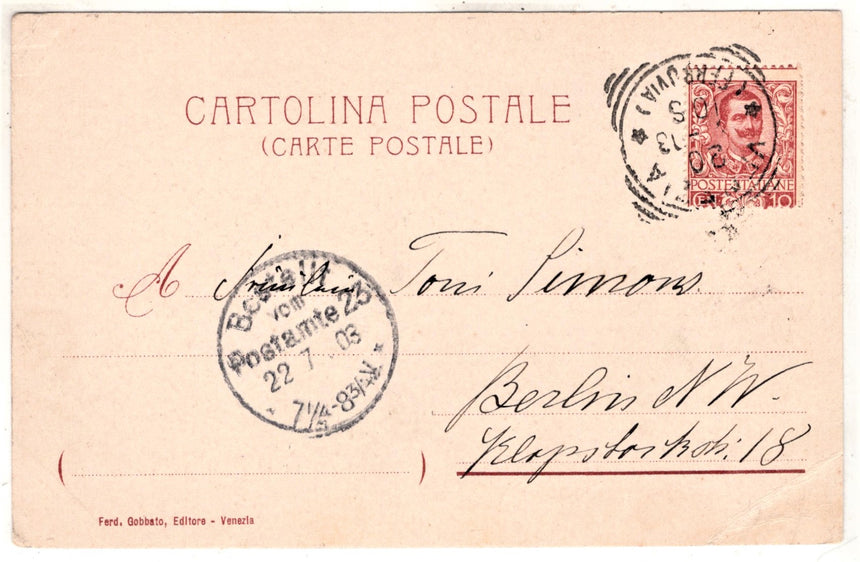 CARTOLINA POSTALE
(CARTE POSTALE)
(FERROVIA)
POSTE ITALIANE
10
A Fräulein Toni Simons
Bestellt
vom
Postamte 23
22 7 03
7¼-8¾ N
Berlin N.W.
Klopstockstr. 18
Ferd. Gobbato, Editore - Venezia